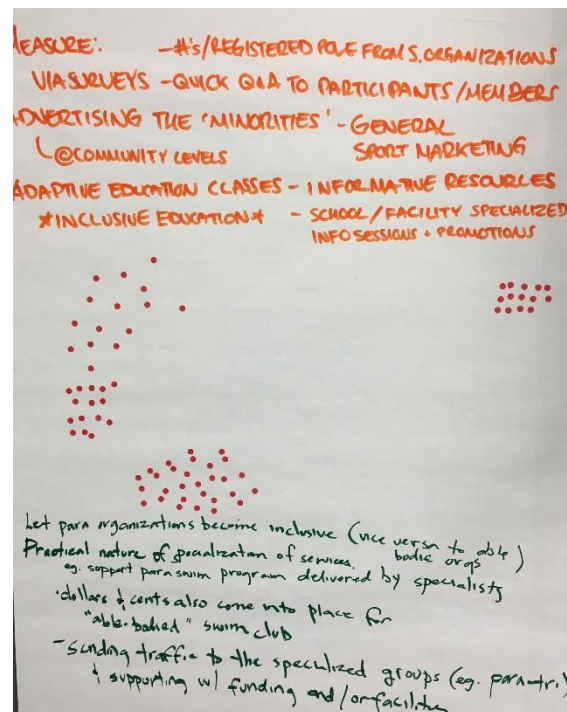 MEASURE: -#'s/REGISTERED POLE FROM S. ORGANIZATIONS
VIA SURVEYS - QUICK Q&A TO PARTICIPANTS/MEMBERS
ADVERTISING THE 'MINORITIES' - GENERAL
@COMMUNITY LEVELS SPORT MARKETING
ADAPTIVE EDUCATION CLASSES - INFORMATIVE RESOURCES
*INCLUSIVE EDUCATION* - SCHOOL/FACILITY SPECIALIZED
INFO SESSIONS + PROMOTIONS
Let para organizations become inclusive (vice versa to able
bodie orgs)
Practical nature of specialization of services.
eg. support para swim program delivered by specialists
·dollars & cents also come into place for
"able-bodied" swim club
-Sending traffic to the specialized groups (eg. para-tri)
& supporting w/ funding and/or facilities